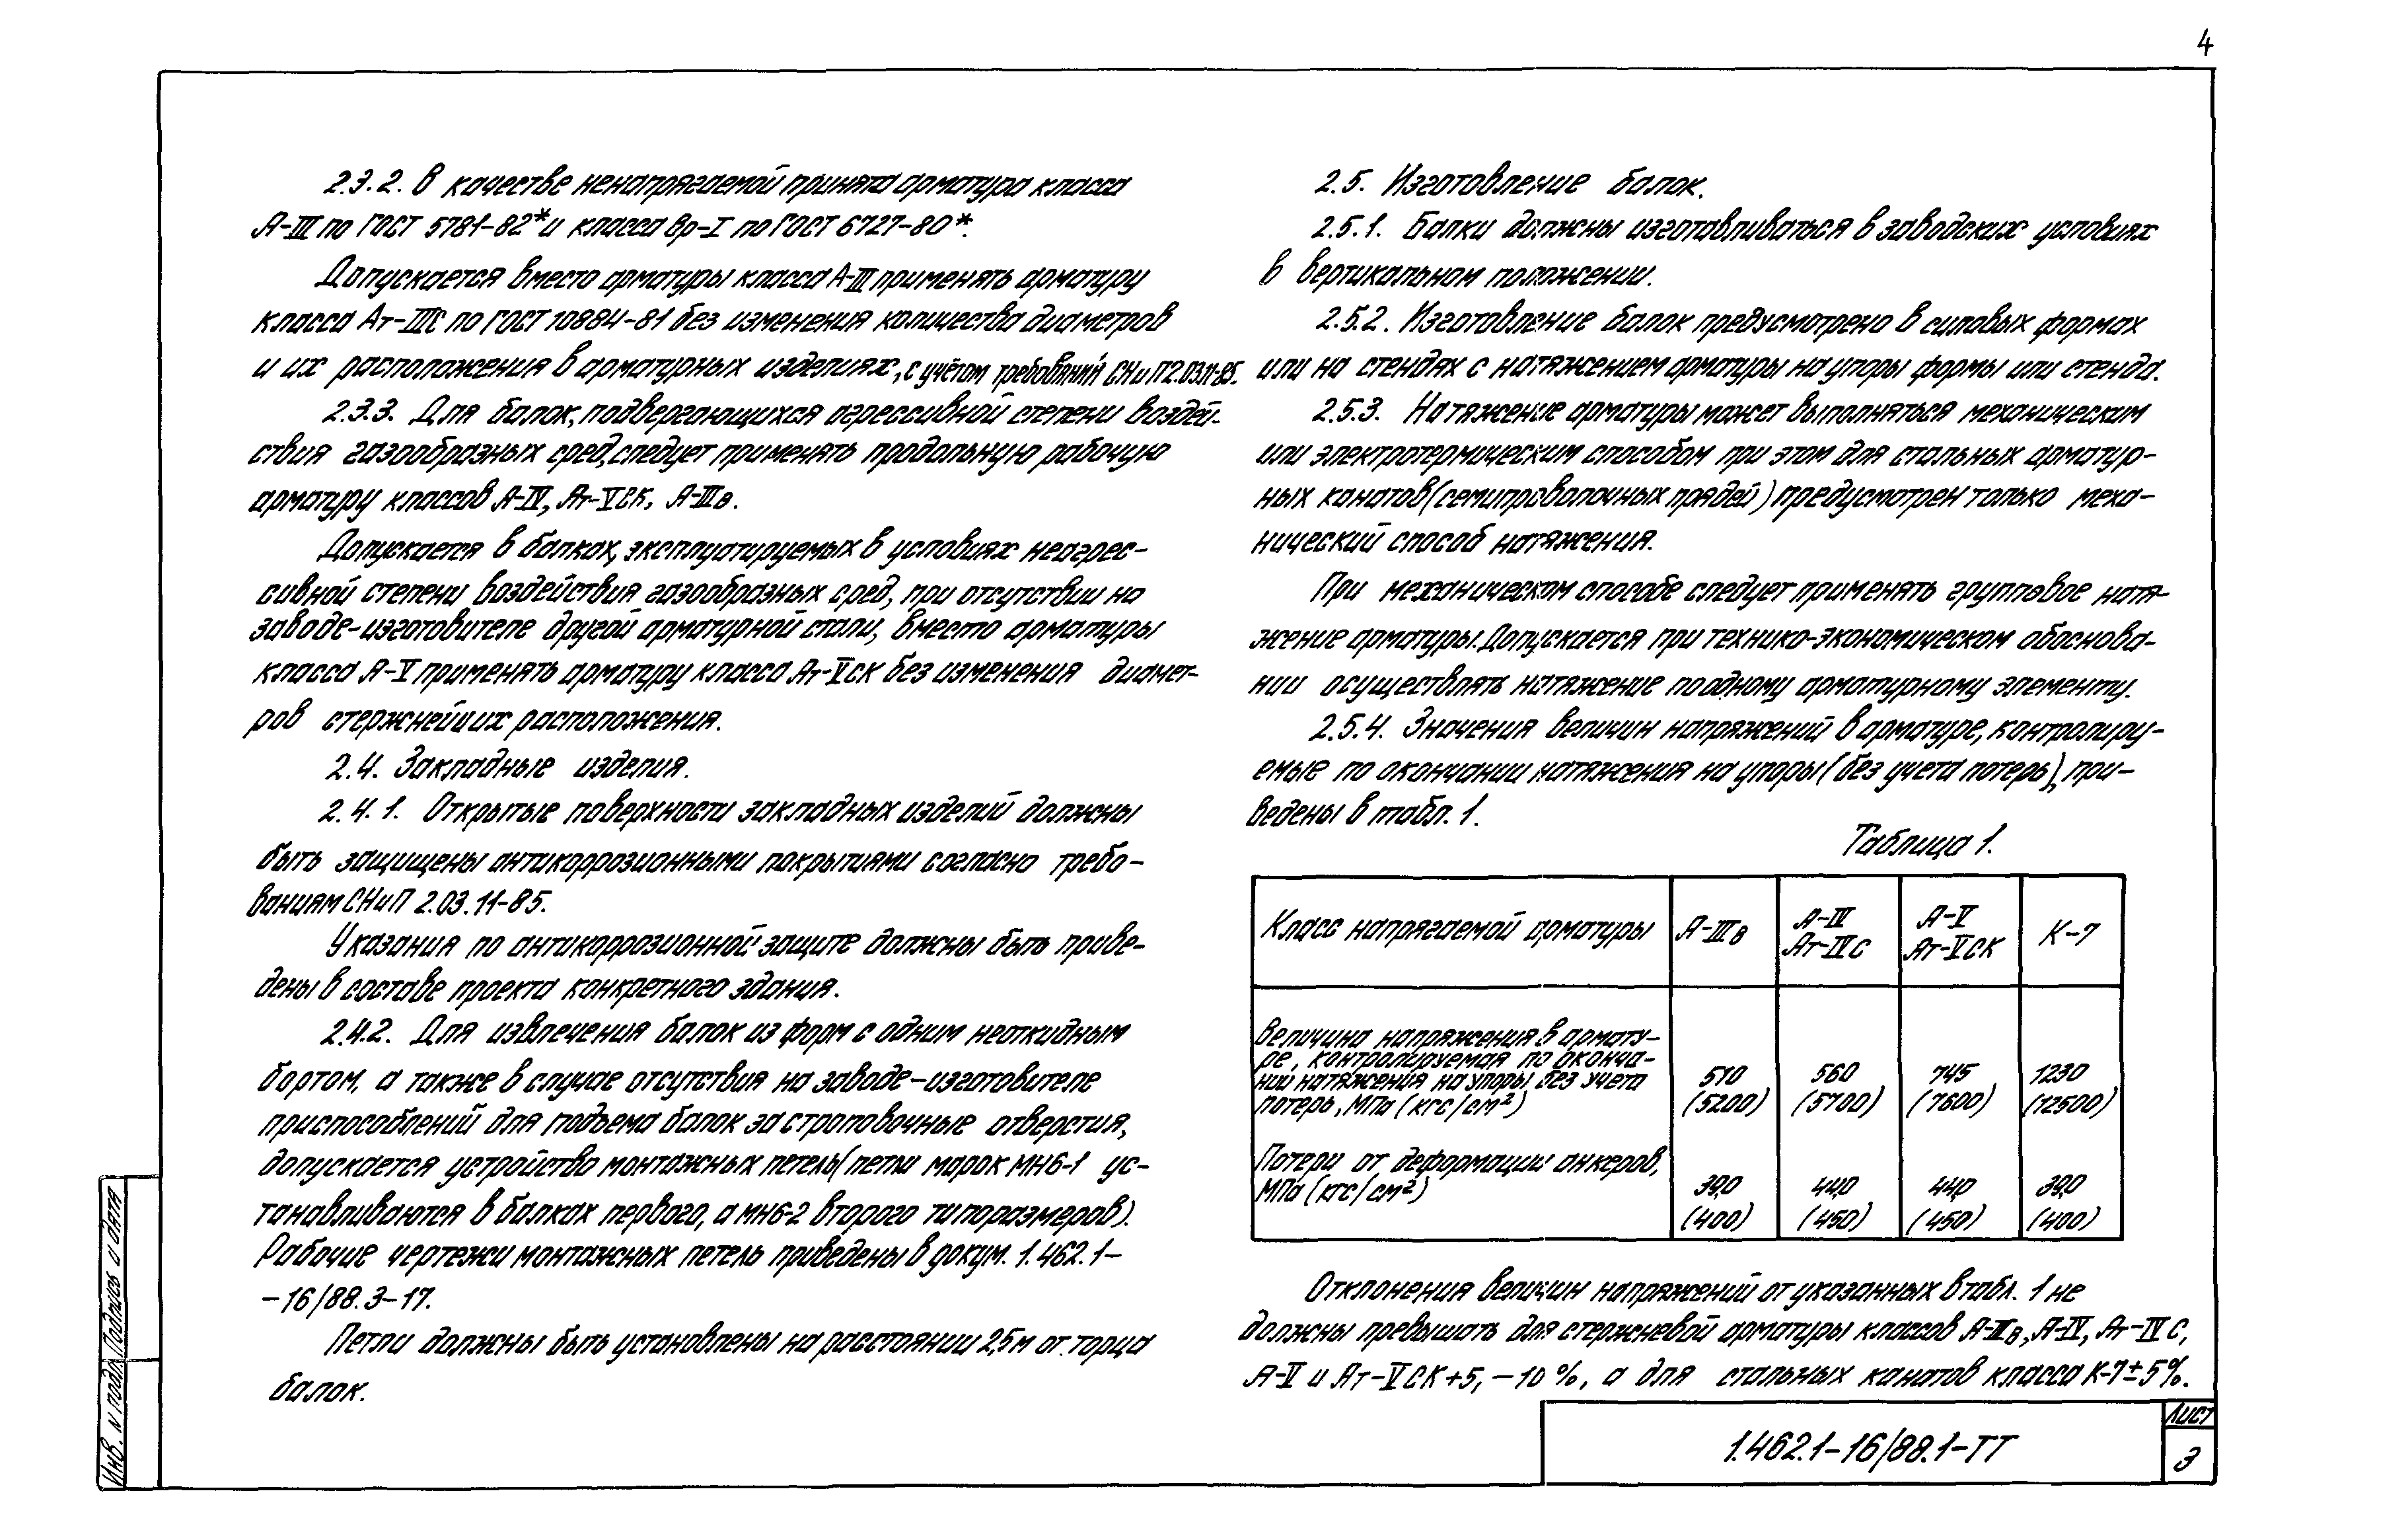 4
2.3.2. В качестве ненапрягаемой принята арматура класса
А-III по ГОСТ 5781-82* и класса Вр-I по ГОСТ 6727-80*.
Допускается вместо арматуры класса А-III применять арматуру
класса Ат-IIIС по ГОСТ 10884-81 без изменения количества диаметров
и их расположения в арматурных изделиях, с учётом требований СНиП 2.03.11-85.
2.3.3. Для балок, подвергающихся агрессивной степени воздей-
ствия газообразных сред, следует применять продольную рабочую
арматуру классов А-IV, Ат-VСК, А-IIIв.
Допускается в балках, эксплуатируемых в условиях неагрес-
сивной степени воздействия газообразных сред, при отсутствии на
заводе-изготовителе другой арматурной стали, вместо арматуры
класса А-V применять арматуру класса Ат-VСК без изменения диамет-
ров стержней и их расположения.
2.4. Закладные изделия.
2.4.1. Открытые поверхности закладных изделий должны
быть защищены антикоррозионными покрытиями согласно требо-
ваниям СНиП 2.03.11-85.
Указания по антикоррозионной защите должны быть приве-
дены в составе проекта конкретного здания.
2.4.2. Для извлечения балок из форм с одним неоткидным
бортом, а также в случае отсутствия на заводе-изготовителе
приспособлений для подъема балок за строповочные отверстия,
допускается устройство монтажных петель (петли марок МН6-1 ус-
танавливаются в балках первого, а МН6-2 второго типоразмеров).
Рабочие чертежи монтажных петель приведены в докум. 1.462.1-
-16/88.3-17.
Петли должны быть установлены на расстоянии 2,5м от торца
балок.
2.5. Изготовление балок.
2.5.1. Балки должны изготавливаться в заводских условиях
в вертикальном положении.
2.5.2. Изготовление балок предусмотрено в силовых формах
или на стендах с натяжением арматуры на упоры формы или стенда.
2.5.3. Натяжение арматуры может выполняться механическим
или электротермическим способом при этом для стальных арматур-
ных канатов (семипроволочных прядей) предусмотрен только меха-
нический способ натяжения.
При механическом способе следует применять групповое натя-
жение арматуры. Допускается при технико-экономическом обоснова-
нии осуществлять натяжение по одному арматурному элементу.
2.5.4. Значения величин напряжений в арматуре, контролиру-
емые по окончании натяжения на упоры (без учета потерь), при-
ведены в табл. 1.
Таблица 1.
Класс напрягаемой арматуры А-IIIв А-IV Ат-IVС А-V Ат-VСК К-7
Величина напряжения в армату-
ре, контролируемая по оконча-
нии натяжения на упоры без учета
потерь, МПа (кгс/см²)
510 (5200) 560 (5700) 745 (7600) 1230 (12500)
Потери от деформации анкеров,
МПа (кгс/см²)
39,0 (400) 44,0 (450) 44,0 (450) 39,0 (400)
Отклонения величин напряжений от указанных в табл. 1 не
должны превышать для стержневой арматуры классов А-IIIв, А-IV, Ат-IVС,
А-V и Ат-VСК +5, -10%, а для стальных канатов класса К-7 ± 5%.
1.462.1-16/88.1-ТТ
Лист
3
Инв. N подл.
Подпись и дата